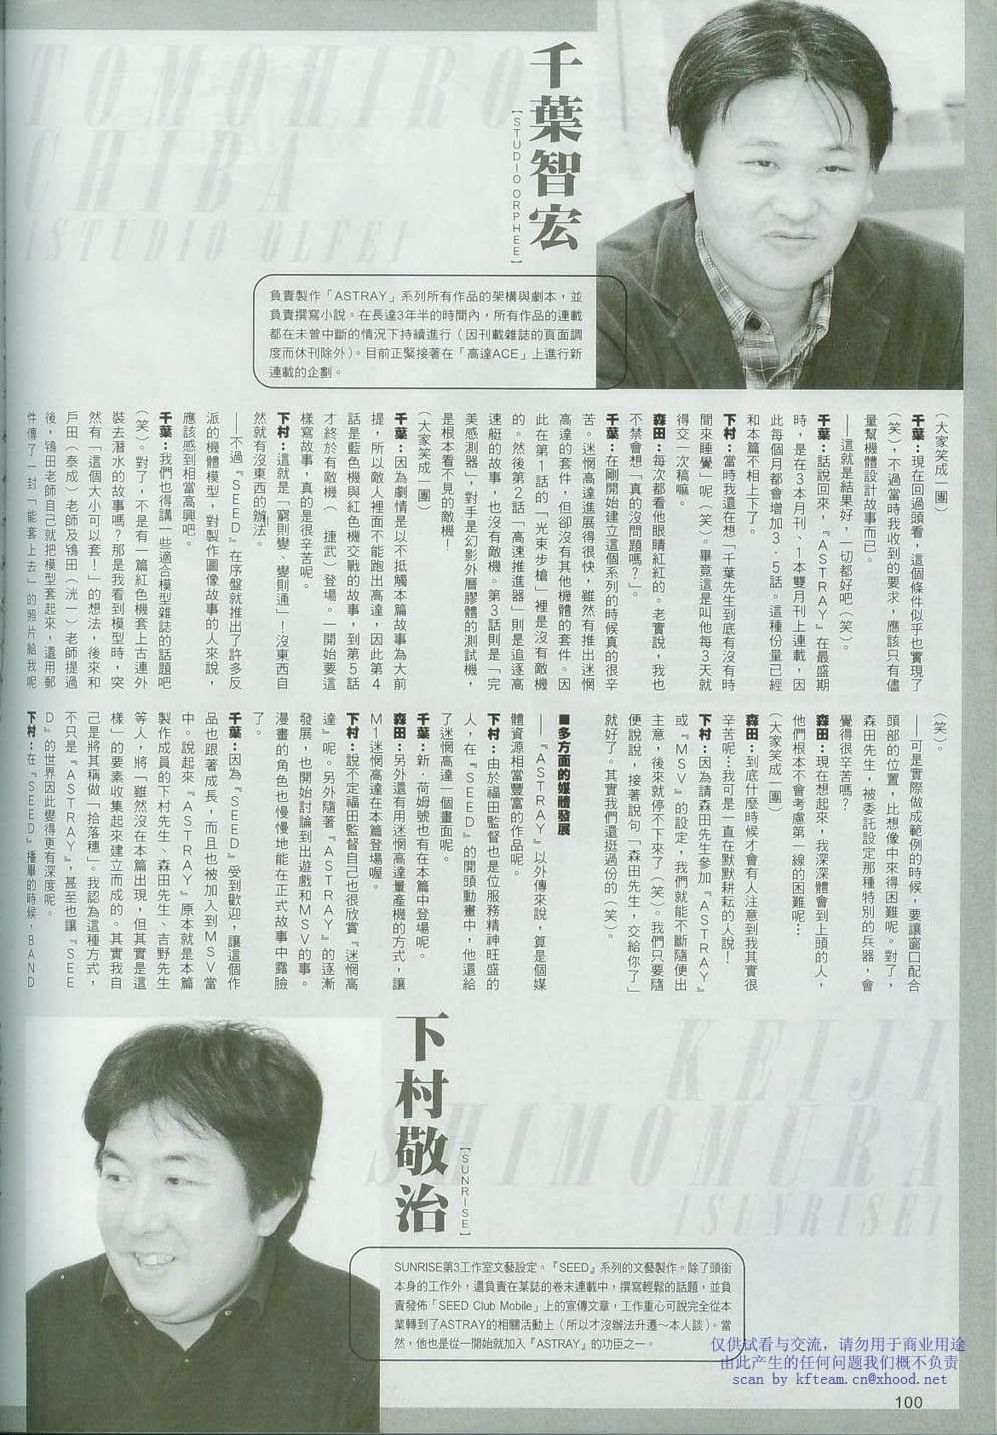 TOMOHIRO
CHIBA
千葉智宏
[STUDIO ORPHEE]
負責製作「ASTRAY」系列所有作品的架構與劇本，並
負責撰寫小說。在長達3年半的時間內，所有作品的連載
都在未曾中斷的情況下持續進行（因刊載雜誌的頁面調
度而休刊除外）。目前正緊接著在「高達ACE」上進行新
連載的企劃。
（大家笑成一團）
千葉：現在回過頭看，這個條件似乎也實現了
（笑），不過當時我收到的要求，應該只有儘
量幫機體設計故事而已。
──這就是結果好，一切都好吧（笑）。
千葉：話說回來，『ASTRAY』在最盛期
時，是在3本月刊、1本雙月刊上連載，因
此每個月都會增加3．5話。這種份量已經
和本篇不相上下了。
下村：當時我還在想「千葉先生到底有沒有時
間來睡覺」呢（笑）。畢竟這是叫他每3天就
得交一次稿嘛。
森田：每次都看他眼睛紅紅的。老實說，我也
不禁會想「真的沒問題嗎？」。
千葉：在剛開始建立這個系列的時候真的很辛
苦。迷惘高達進展得很快，雖然有推出迷惘
高達的套件，但卻沒有其他機體的套件。因
此在第1話的「光束步槍」裡是沒有敵機
的。然後第2話「高速推進器」則是追逐高
速艇的故事，也沒有敵機。第3話則是「完
美感測器」，對手是幻影外層膠體的測試機，
是根本看不見的敵機！
（大家笑成一團）
千葉：因為劇情是以不抵觸本篇故事為大前
提，所以敵人裡面不能跑出高達，因此第4
話是藍色機與紅色機交戰的故事，到第5話
才終於有敵機（　捷武）登場。一開始要這
樣寫故事，真的是很辛苦呢。
下村：這就是「窮則變、變則通」！沒東西自
然就有沒東西的辦法。
──不過『SEED』在序盤就推出了許多反
派的機體模型，對製作圖像故事的人來說，
應該感到相當高興吧。
千葉：我們也得講一些適合模型雜誌的話題吧
（笑）。對了，不是有一篇紅色機套上古連外
裝去潛水的故事嗎？那是我看到模型時，突
然有「這個大小可以套！」的想法，後來和
戶田（泰成）老師及鴇田（洸一）老師提過
後，鴇田老師自己就把模型套起來，還用郵
件傳了一封「能套上去」的照片給我呢
（笑）。
──可是實際做成範例的時候，要讓窗口配合
頭部的位置，比想像中來得困難呢。對了，
森田先生，被委託設定那種特別的兵器，會
覺得很辛苦嗎？
森田：現在想起來，我深深體會到上頭的人，
他們根本不會考慮第一線的困難呢…
（大家笑成一團）
森田：到底什麼時候才會有人注意到我其實很
辛苦呢…我可是一直在默默耕耘的人說！
下村：因為請森田先生參加『ASTRAY』
或『MSV』的設定，我們就能不斷隨便出
主意，後來就停不下來了（笑）。我們只要隨
便說說，接著說句「森田先生，交給你了」
就好了。其實我們還挺過份的（笑）。
■多方面的媒體發展
──『ASTRAY』以外傳來說，算是個媒
體資源相當豐富的作品呢。
下村：由於福田監督也是位服務精神旺盛的
人，在『SEED』的開頭動畫中，他還給
了迷惘高達一個畫面呢。
千葉：新．荷姆號也有在本篇中登場呢。
森田：另外還有用迷惘高達量產機的方式，讓
M1迷惘高達在本篇登場喔。
下村：說不定福田監督自己也很欣賞『迷惘高
達』呢。另外隨著『ASTRAY』的逐漸
發展，也開始討論到出遊戲和MSV的事。
漫畫的角色也慢慢地能在正式故事中露臉
了。
千葉：因為『SEED』受到歡迎，讓這個作
品也跟著成長，而且也被加入到MSV當
中。說起來『ASTRAY』原本就是本篇
製作成員的下村先生、森田先生、吉野先生
等人，將「雖然沒在本篇出現，但其實是這
樣」的要素收集起來建立而成的。其實我自
己是將其稱做「拾落穗」。我認為這種方式，
不只是『ASTRAY』，甚至也讓『SEE
D』的世界因此變得更有深度呢。
下村：在『SEED』播畢的時候，BAND
KEIJI
SHIMOMURA
[SUNRISE]
下村敬治
[SUNRISE]
SUNRISE第3工作室文藝設定。『SEED』系列的文藝製作。除了頭銜
本身的工作外，還負責在某誌的卷末連載中，撰寫輕鬆的話題，並負
責發佈「SEED Club Mobile」上的宣傳文章，工作重心可說完全從本
業轉到了ASTRAY的相關活動上（所以才沒辦法升遷～本人談）。當
然，他也是從一開始就加入『ASTRAY』的功臣之一。
仅供试看与交流，请勿用于商业用途
由此产生的任何问题我们概不负责
scan by kfteam.cn@xhood.net
100